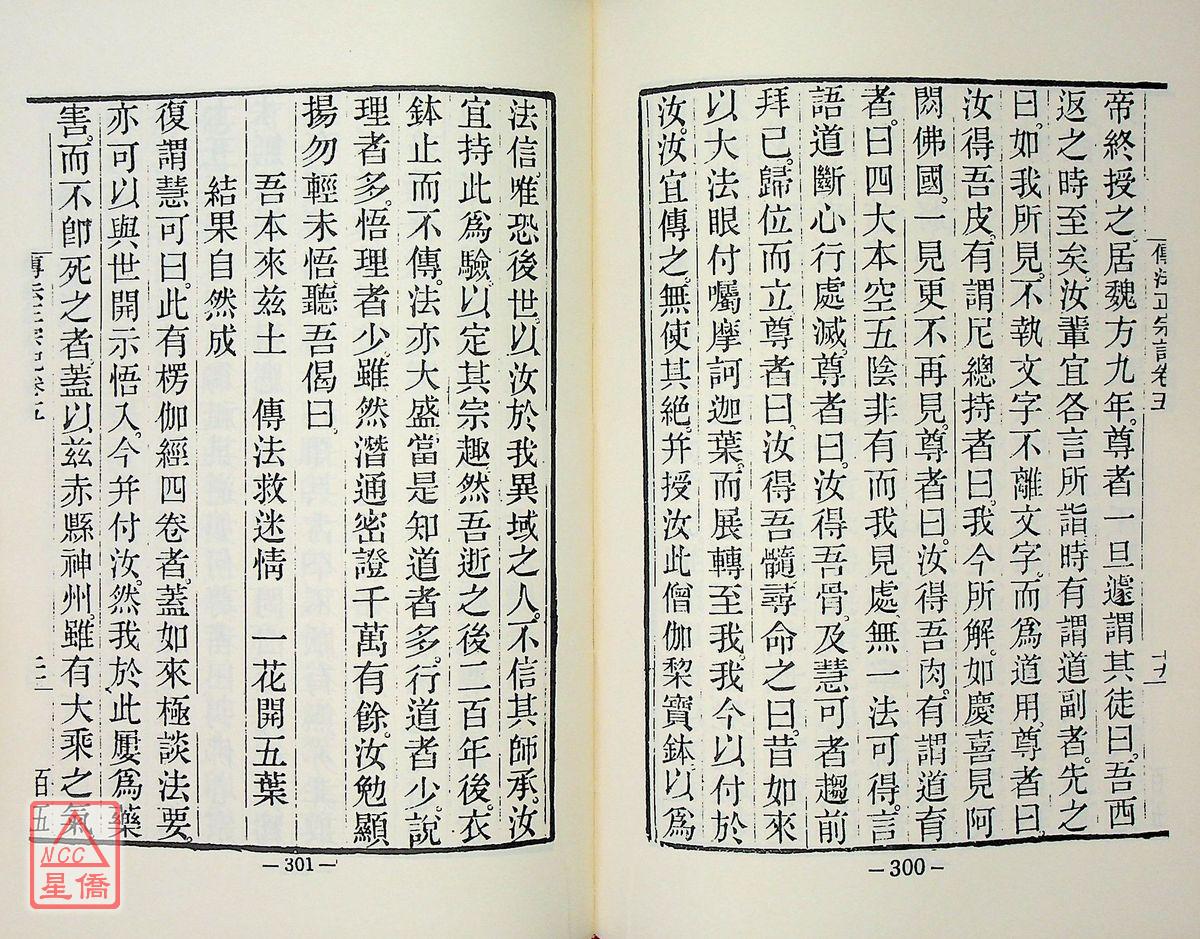 傳法正宗記卷五
十九
帝終授之。居魏方九年。尊者一旦遽謂其徒曰。吾西
返之時至矣。汝輩宜各言所詣。時有謂道副者。先之
曰。如我所見。不執文字。不離文字。而爲道用。尊者曰。
汝得吾皮。有謂尼總持者曰。我今所解。如慶喜見阿
閦佛國。一見更不再見。尊者曰。汝得吾肉。有謂道育
者。曰四大本空。五陰非有。而我見處無一法可得。言
語道斷。心行處滅。尊者曰。汝得吾骨。及慧可者趨前
拜已。歸位而立。尊者曰。汝得吾髓。尋命之曰。昔如來
以大法眼付囑摩訶迦葉。而展轉至我。我今以付於
汝。汝宜傳之。無使其絕。幷授汝此僧伽黎寶鉢。以爲
—300—
法信。唯恐後世以汝於我異域之人。不信其師承。汝
宜持此爲驗。以定其宗趣。然吾逝之後二百年後。衣
鉢止而不傳。法亦大盛。當是知道者多。行道者少。說
理者多。悟理者少。雖然潛通密證千萬有餘。汝勉顯
揚。勿輕未悟。聽吾偈曰。
吾本來兹土 傳法救迷情 一花開五葉
結果自然成
復謂慧可曰。此有楞伽經四卷者。蓋如來極談法要。
亦可以與世開示悟入。今幷付汝。然我於此屢爲藥
害。而不卽死之者。蓋以兹赤縣神州。雖有大乘之氣
—301—
NCC
星僑